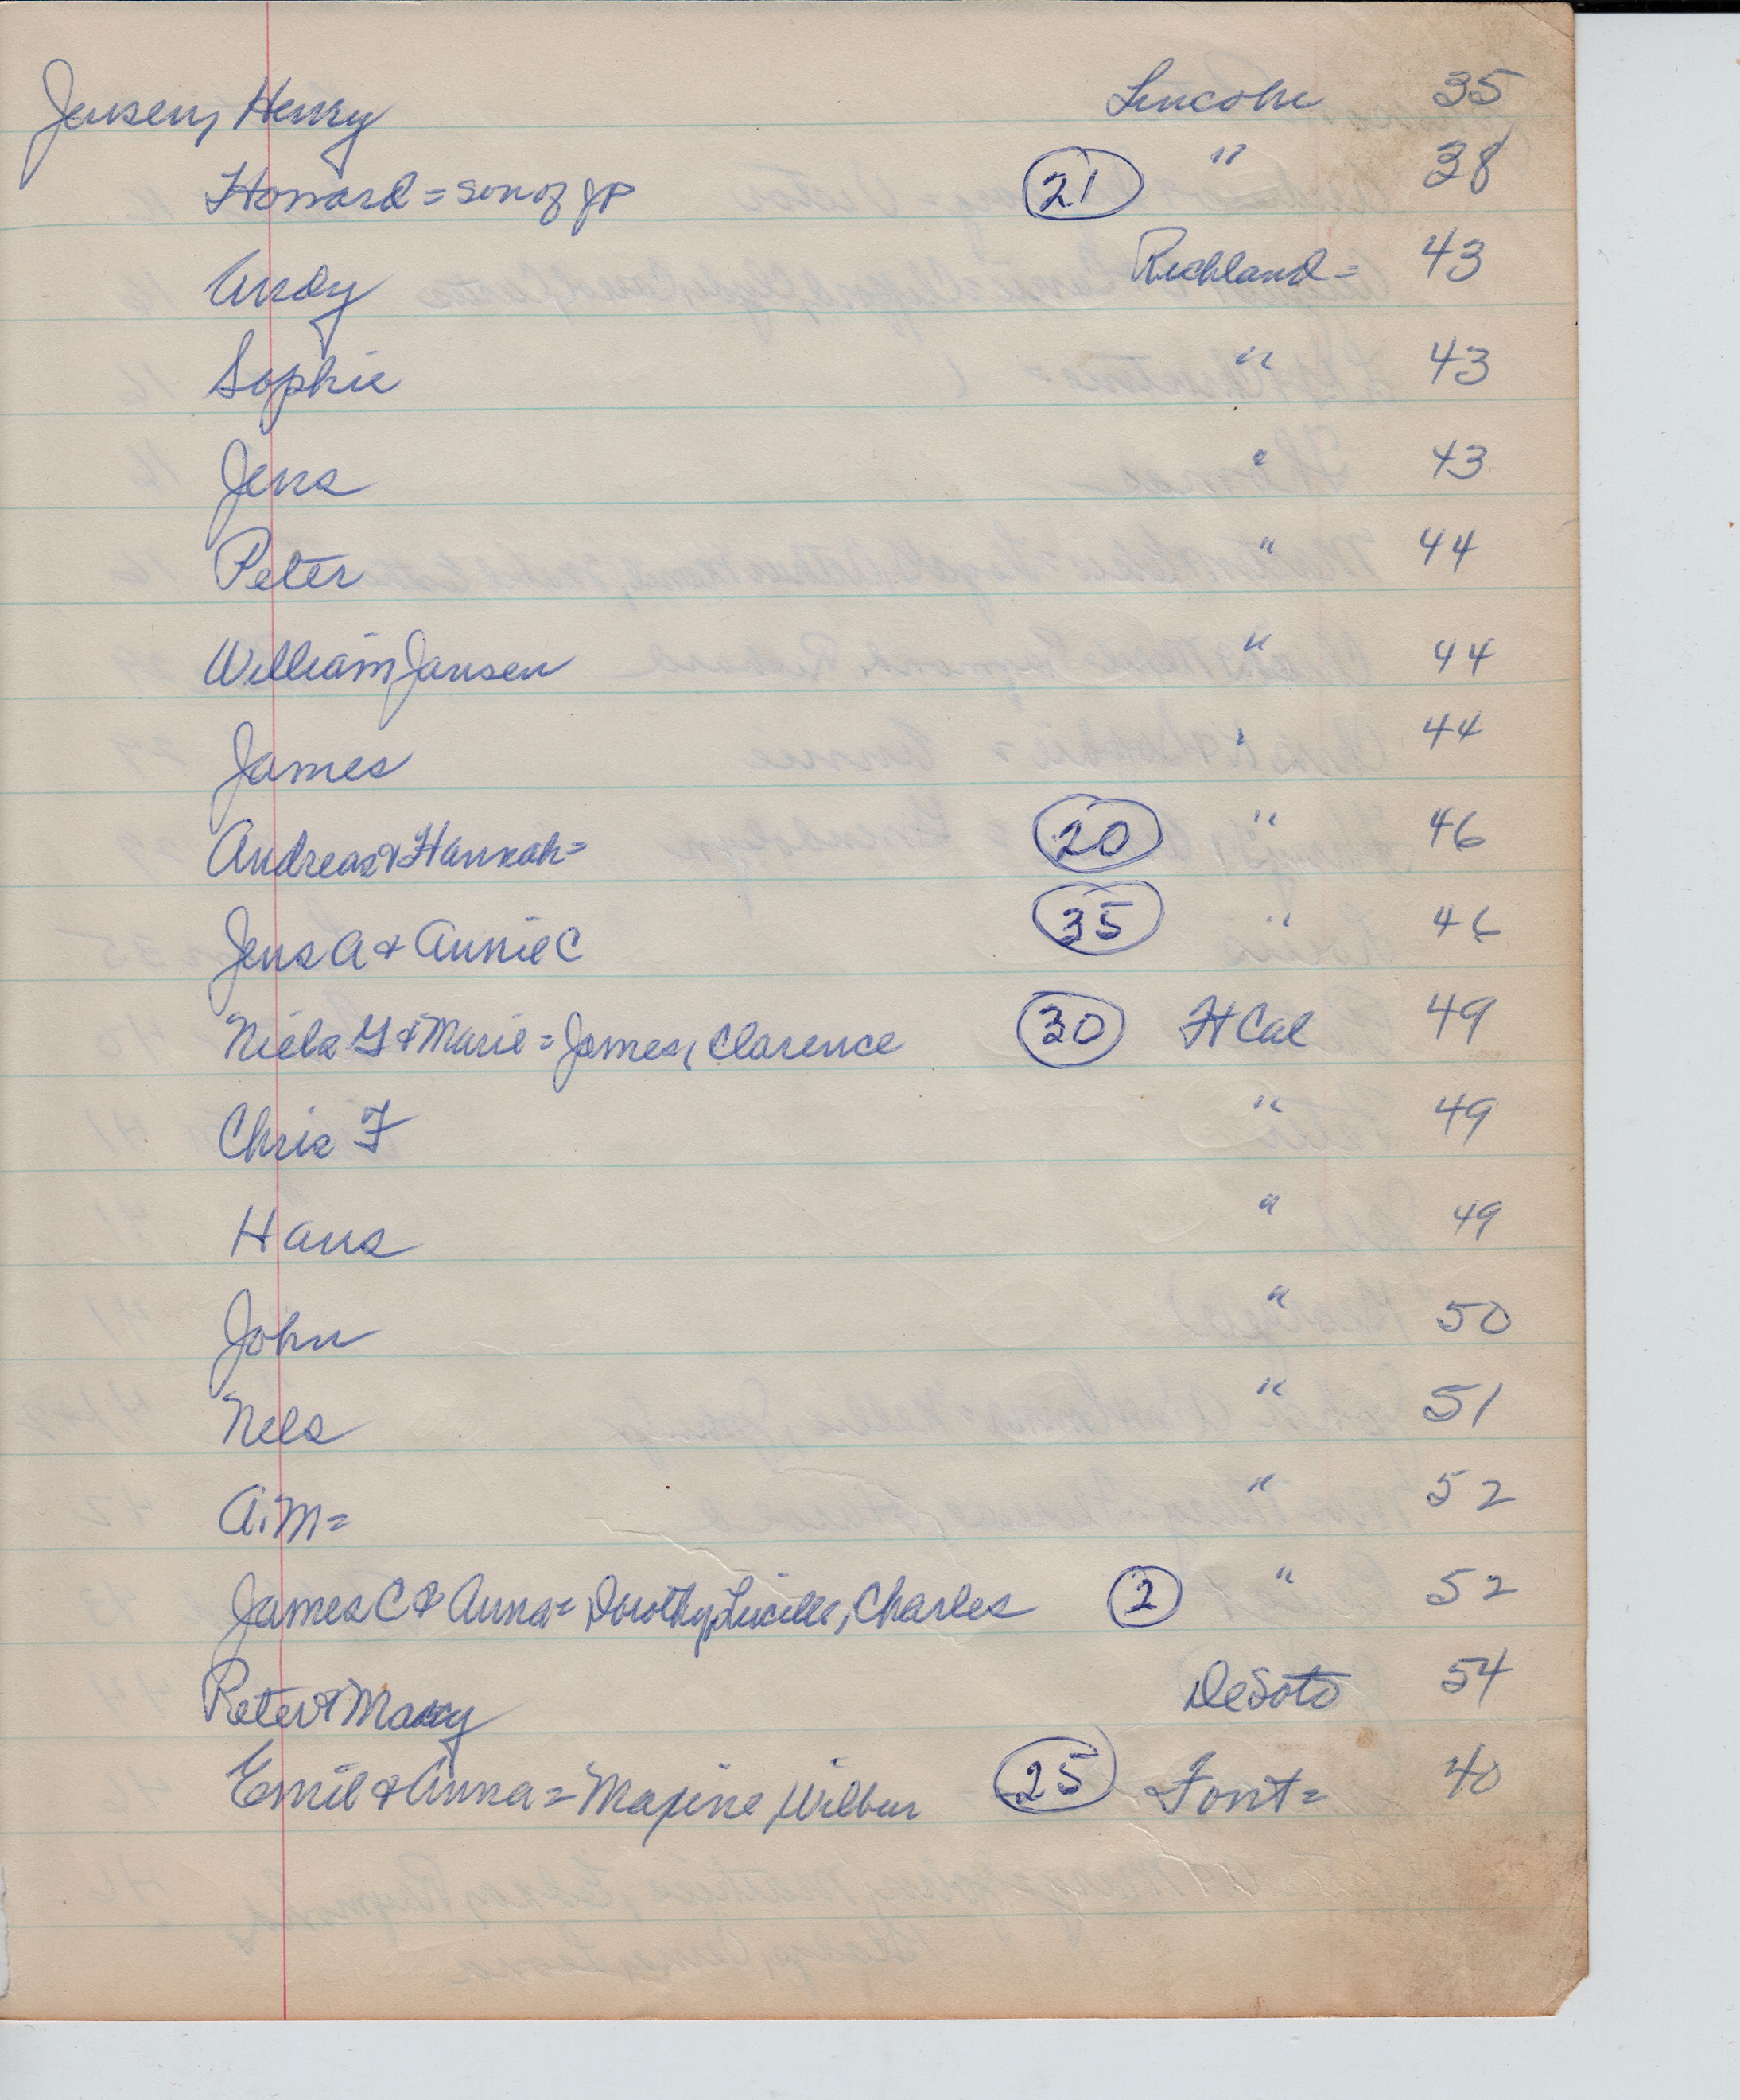 Jensen, Henry Lincoln 35
Howard = son of JP 21 " 38
Andy Richland = 43
Sophie " 43
Jens " 43
Peter " 44
William Jansen " 44
James " 44
Andreas & Hannah = 20 " 46
Jens A & Annie C 35 " 46
Niels G & Marie = James, Clarence 30 Ft Cal 49
Chris F " 49
Hans " 49
John " 50
Nels " 51
A. M = " 52
James C & Anna = Dorothy, Lucille, Charles 2 " 52
Peter & Mary DeSoto 54
Emil & Anna = Maxine, Wilbur 25 Font = 40